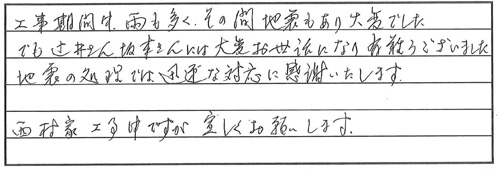 工事期間中、雨も多く、その間地震もあり大変でした
でも辻井さん坂本さんには大変お世話になり有難うございました
地震の処理では迅速な対応に感謝いたします。
西村家工事中ですが宜しくお願いします。